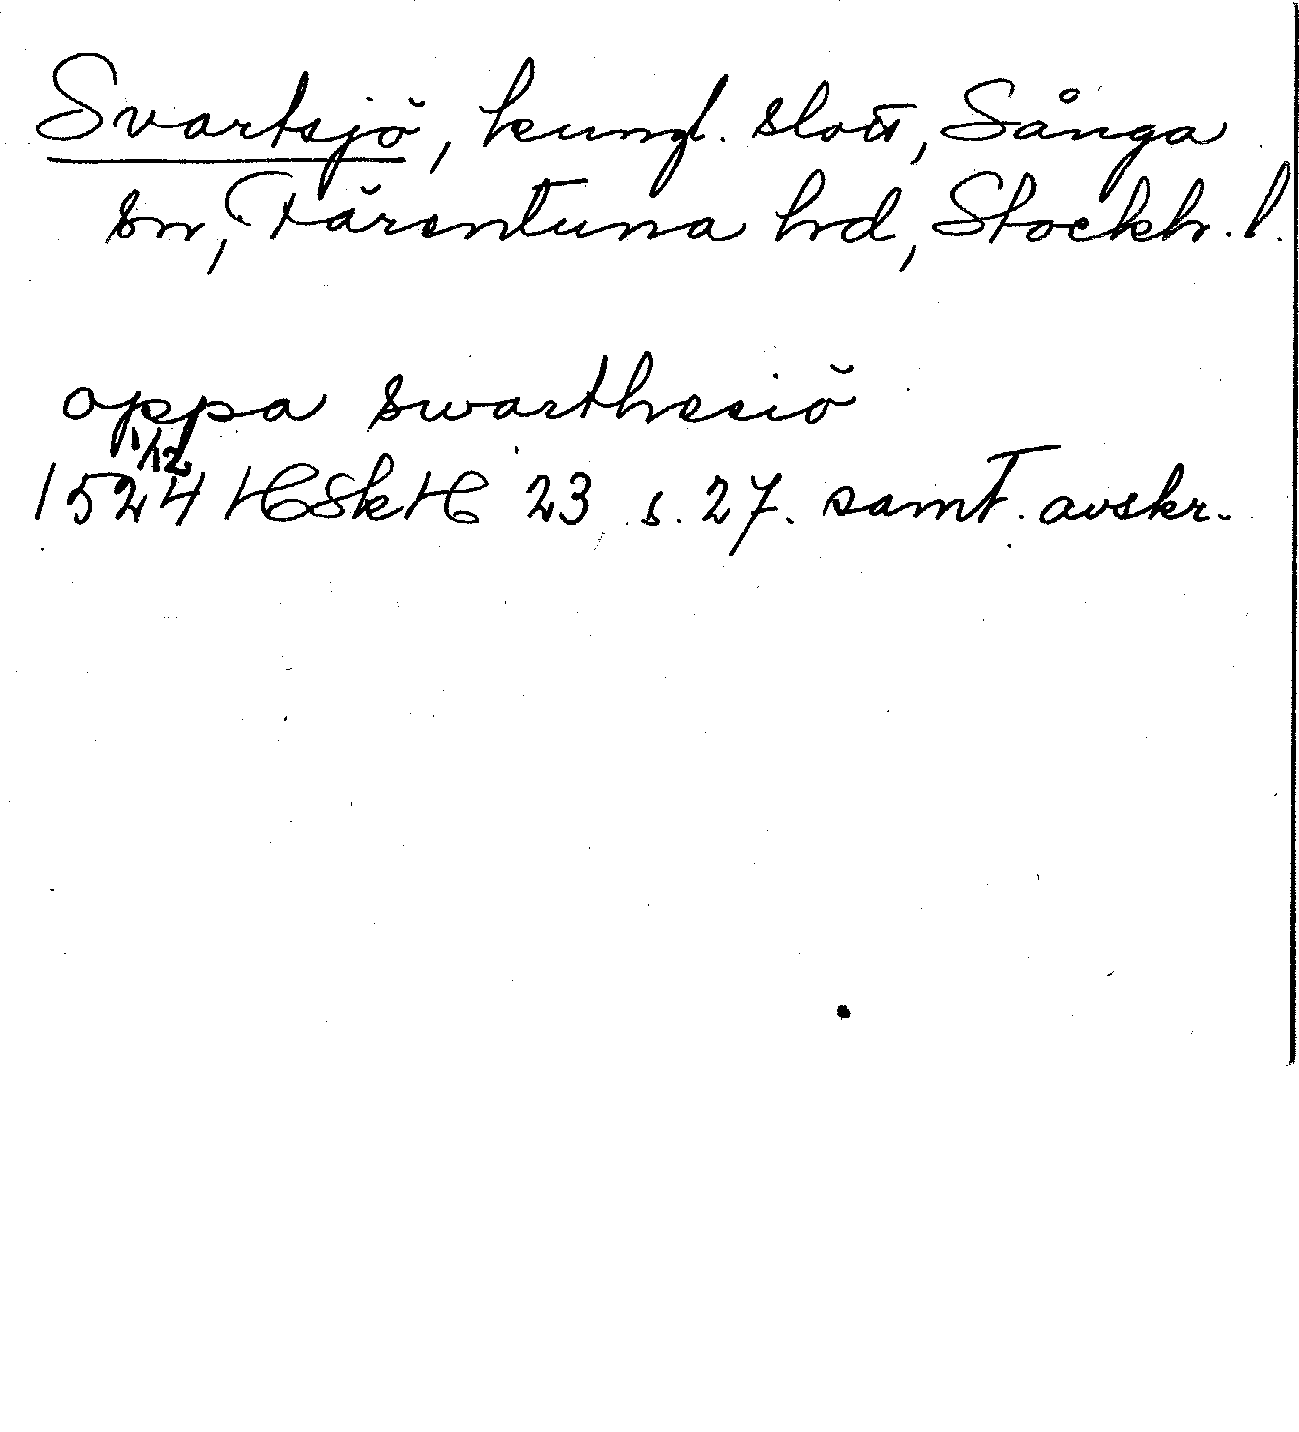 Svartsjö, kungl. slott, Sånga
sn, Färentuna hd, Stockh. l.
oppa swarthesiö
1/12
1524 HSkH 23 s. 27. samt. avskr.